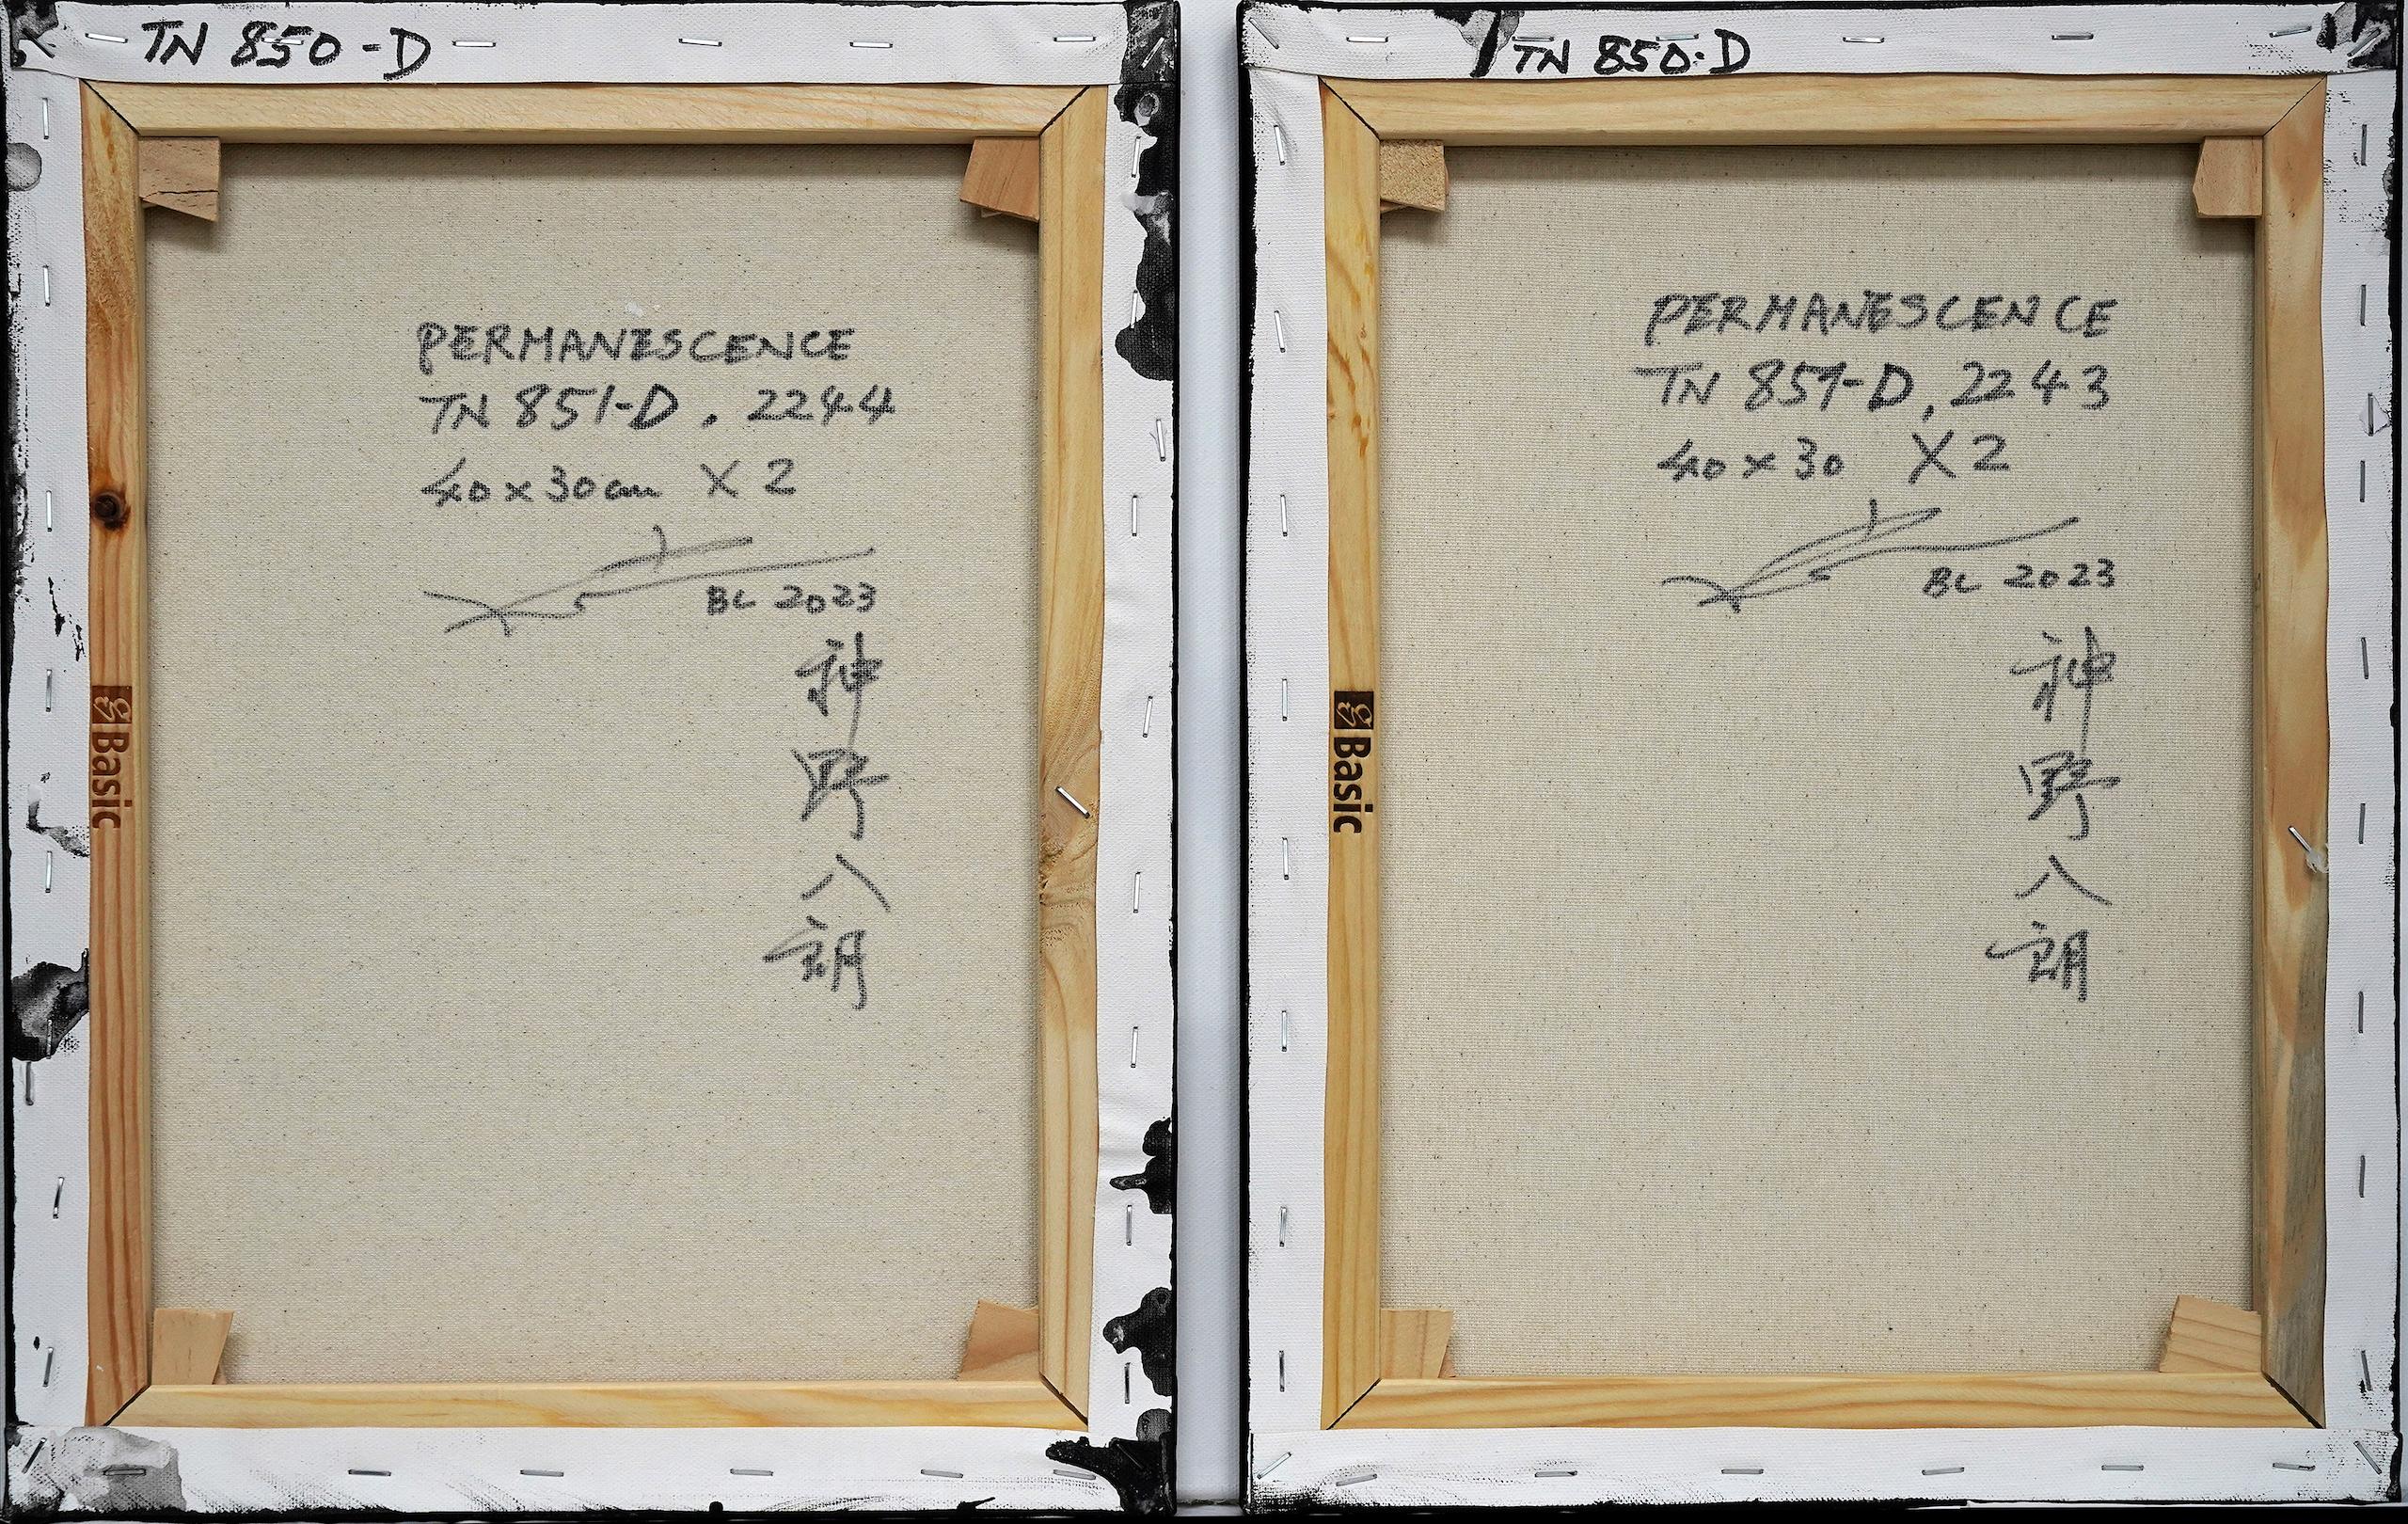 TN 850-D
PERMANESCENCE
TN 851-D. 2244
40x30cm X 2
BL 2023
神野八朗
Basic
TN 850-D
PERMANESCENCE
TN 851-D. 2243
40x30 X2
BL 2023
神野八朗
Basic